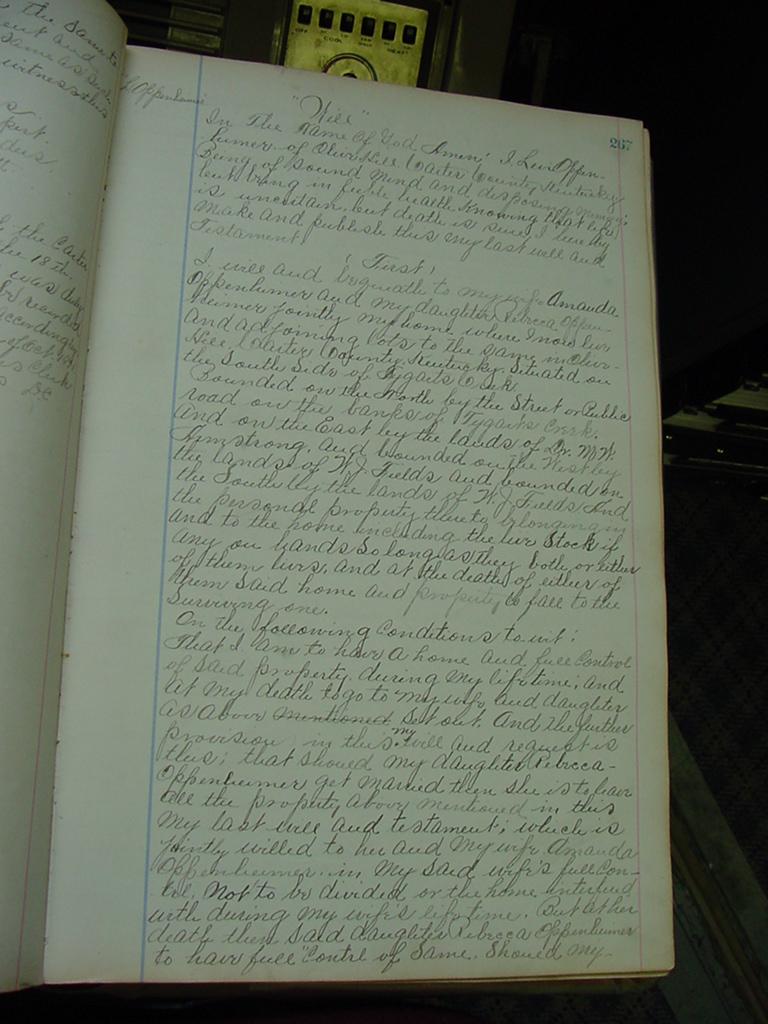 the same to
ent and
same as such
witness this
the Carter
the 18th
was duly
according
of Oct
Clerk
DC
267
L Oppenheimer
"Will"
In The Name Of God Amen; I, Levi Oppen-
heimer of Olive Hill Carter County Kentucky
Being of sound mind and disposing memory;
but being in feeble health, Knowing that life
is uncertain, but death is sure, I here by
Make and publish this my last will and
Testament!
(First)
I will and bequeath to my wife Amanda
Oppenheimer and my daughter Rebecca Oppen-
heimer jointly my home where I now live
and adjoining lots to the same in Olive-
Hill Carter County, Kentucky. Situated on
the South Side of Tygarts Creek
Bounded on the North by the Street or Public
road on the banks of Tygarts Creek.
And on the East by the lands of Dr. M. W.
Armstrong, and bounded on the West by
the lands of W. J. Fields and bounded on
the South by the lands of W. J. Fields And
the personal property there to belonging in
and to the home including the live Stock if
any on hands so long as they both, or either
of them lives, and at the death of either of
them said home and property to fall to the
surviving one.
On the following Conditions to wit:
That I am to have a home and full Control
of said property, during my life time; and
at my death to go to my wife and daughter
as above mentioned set out. And the further
provision in this my will and request is
this; that should my daughter Rebecca-
Oppenheimer get married then she is to leave
all the property above mentioned in this
my last will and testament; which is
jointly willed to her and my wife Amanda
Oppenheimer, in my said wife's full Con-
trol, Not to be divided or the home interfered
with during my wife's life time. But at her
death then said daughter Rebecca Oppenheimer
to have full Contrl of Same. Should my-
OFF
COOL
HEAT